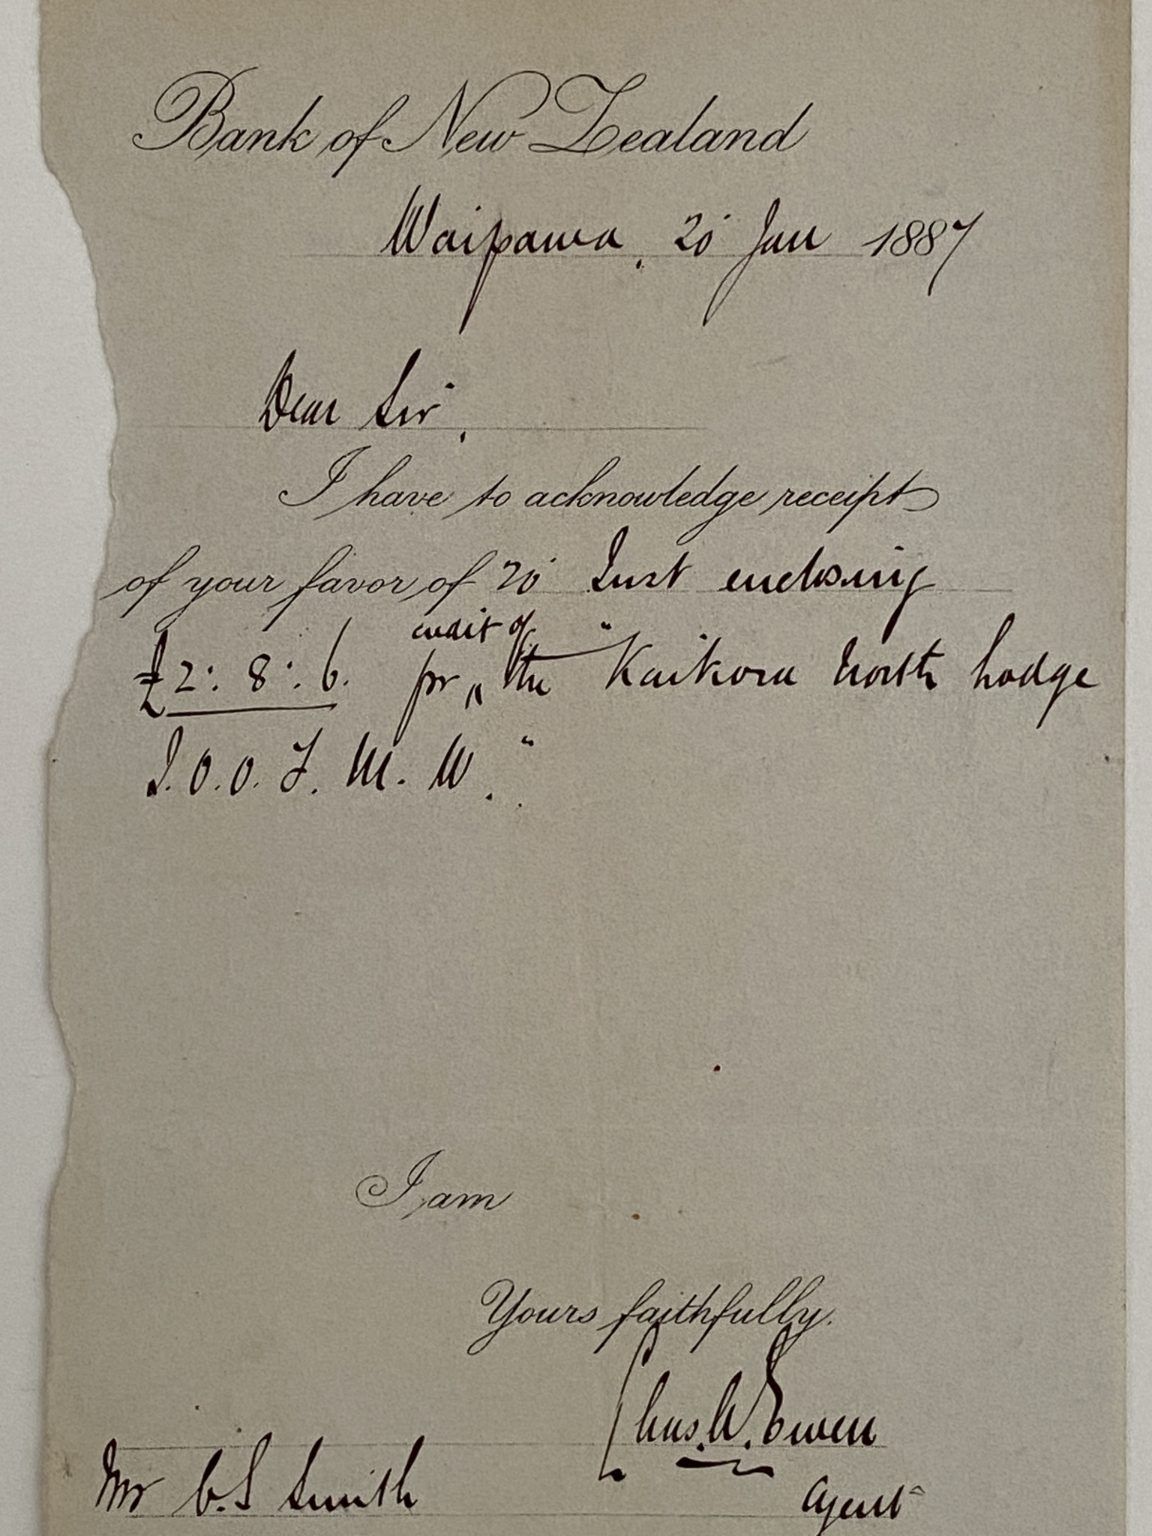 Bank of New Zealand
Waipawa, 20 Jan 1887
Dear Sir,
I have to acknowledge receipt
of your favor of 20 Inst enclosing
credit of
£2:8:6. for the "Kaikora North Lodge
I.O.O.F.M.W."
I am
Yours faithfully.
Chas. W. Ewen
Mr C.S Smith
Agent